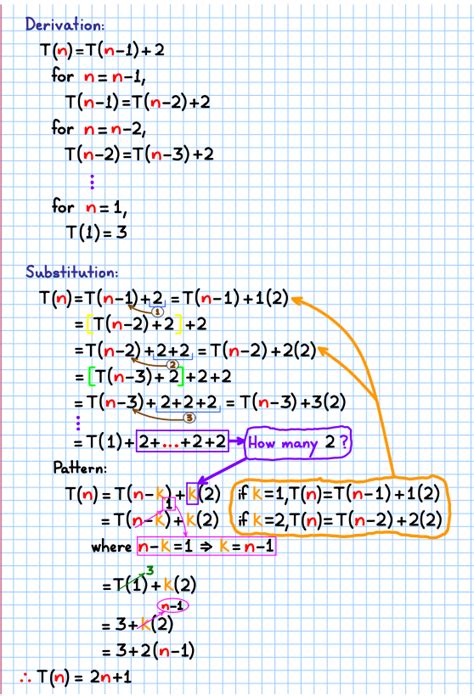 Derivation:
T(n)=T(n-1)+2
for n=n-1,
T(n-1)=T(n-2)+2
for n=n-2,
T(n-2)=T(n-3)+2
⋮
for n=1,
T(1)=3
Substitution:
T(n)=T(n-1)+2 = T(n-1)+1(2)
1
=[T(n-2)+2]+2
=T(n-2)+2+2 = T(n-2)+2(2)
2
=[T(n-3)+2]+2+2
=T(n-3)+2+2+2 = T(n-3)+3(2)
3
⋮
=T(1)+2+...+2+2 How many 2?
Pattern:
T(n)=T(n-k)+k(2) if k=1,T(n)=T(n-1)+1(2)
1
=T(n-k)+k(2) if k=2,T(n)=T(n-2)+2(2)
where n-k=1 ⇒ k=n-1
3
=T(1)+k(2)
n-1
=3+k(2)
=3+2(n-1)
∴ T(n) = 2n+1